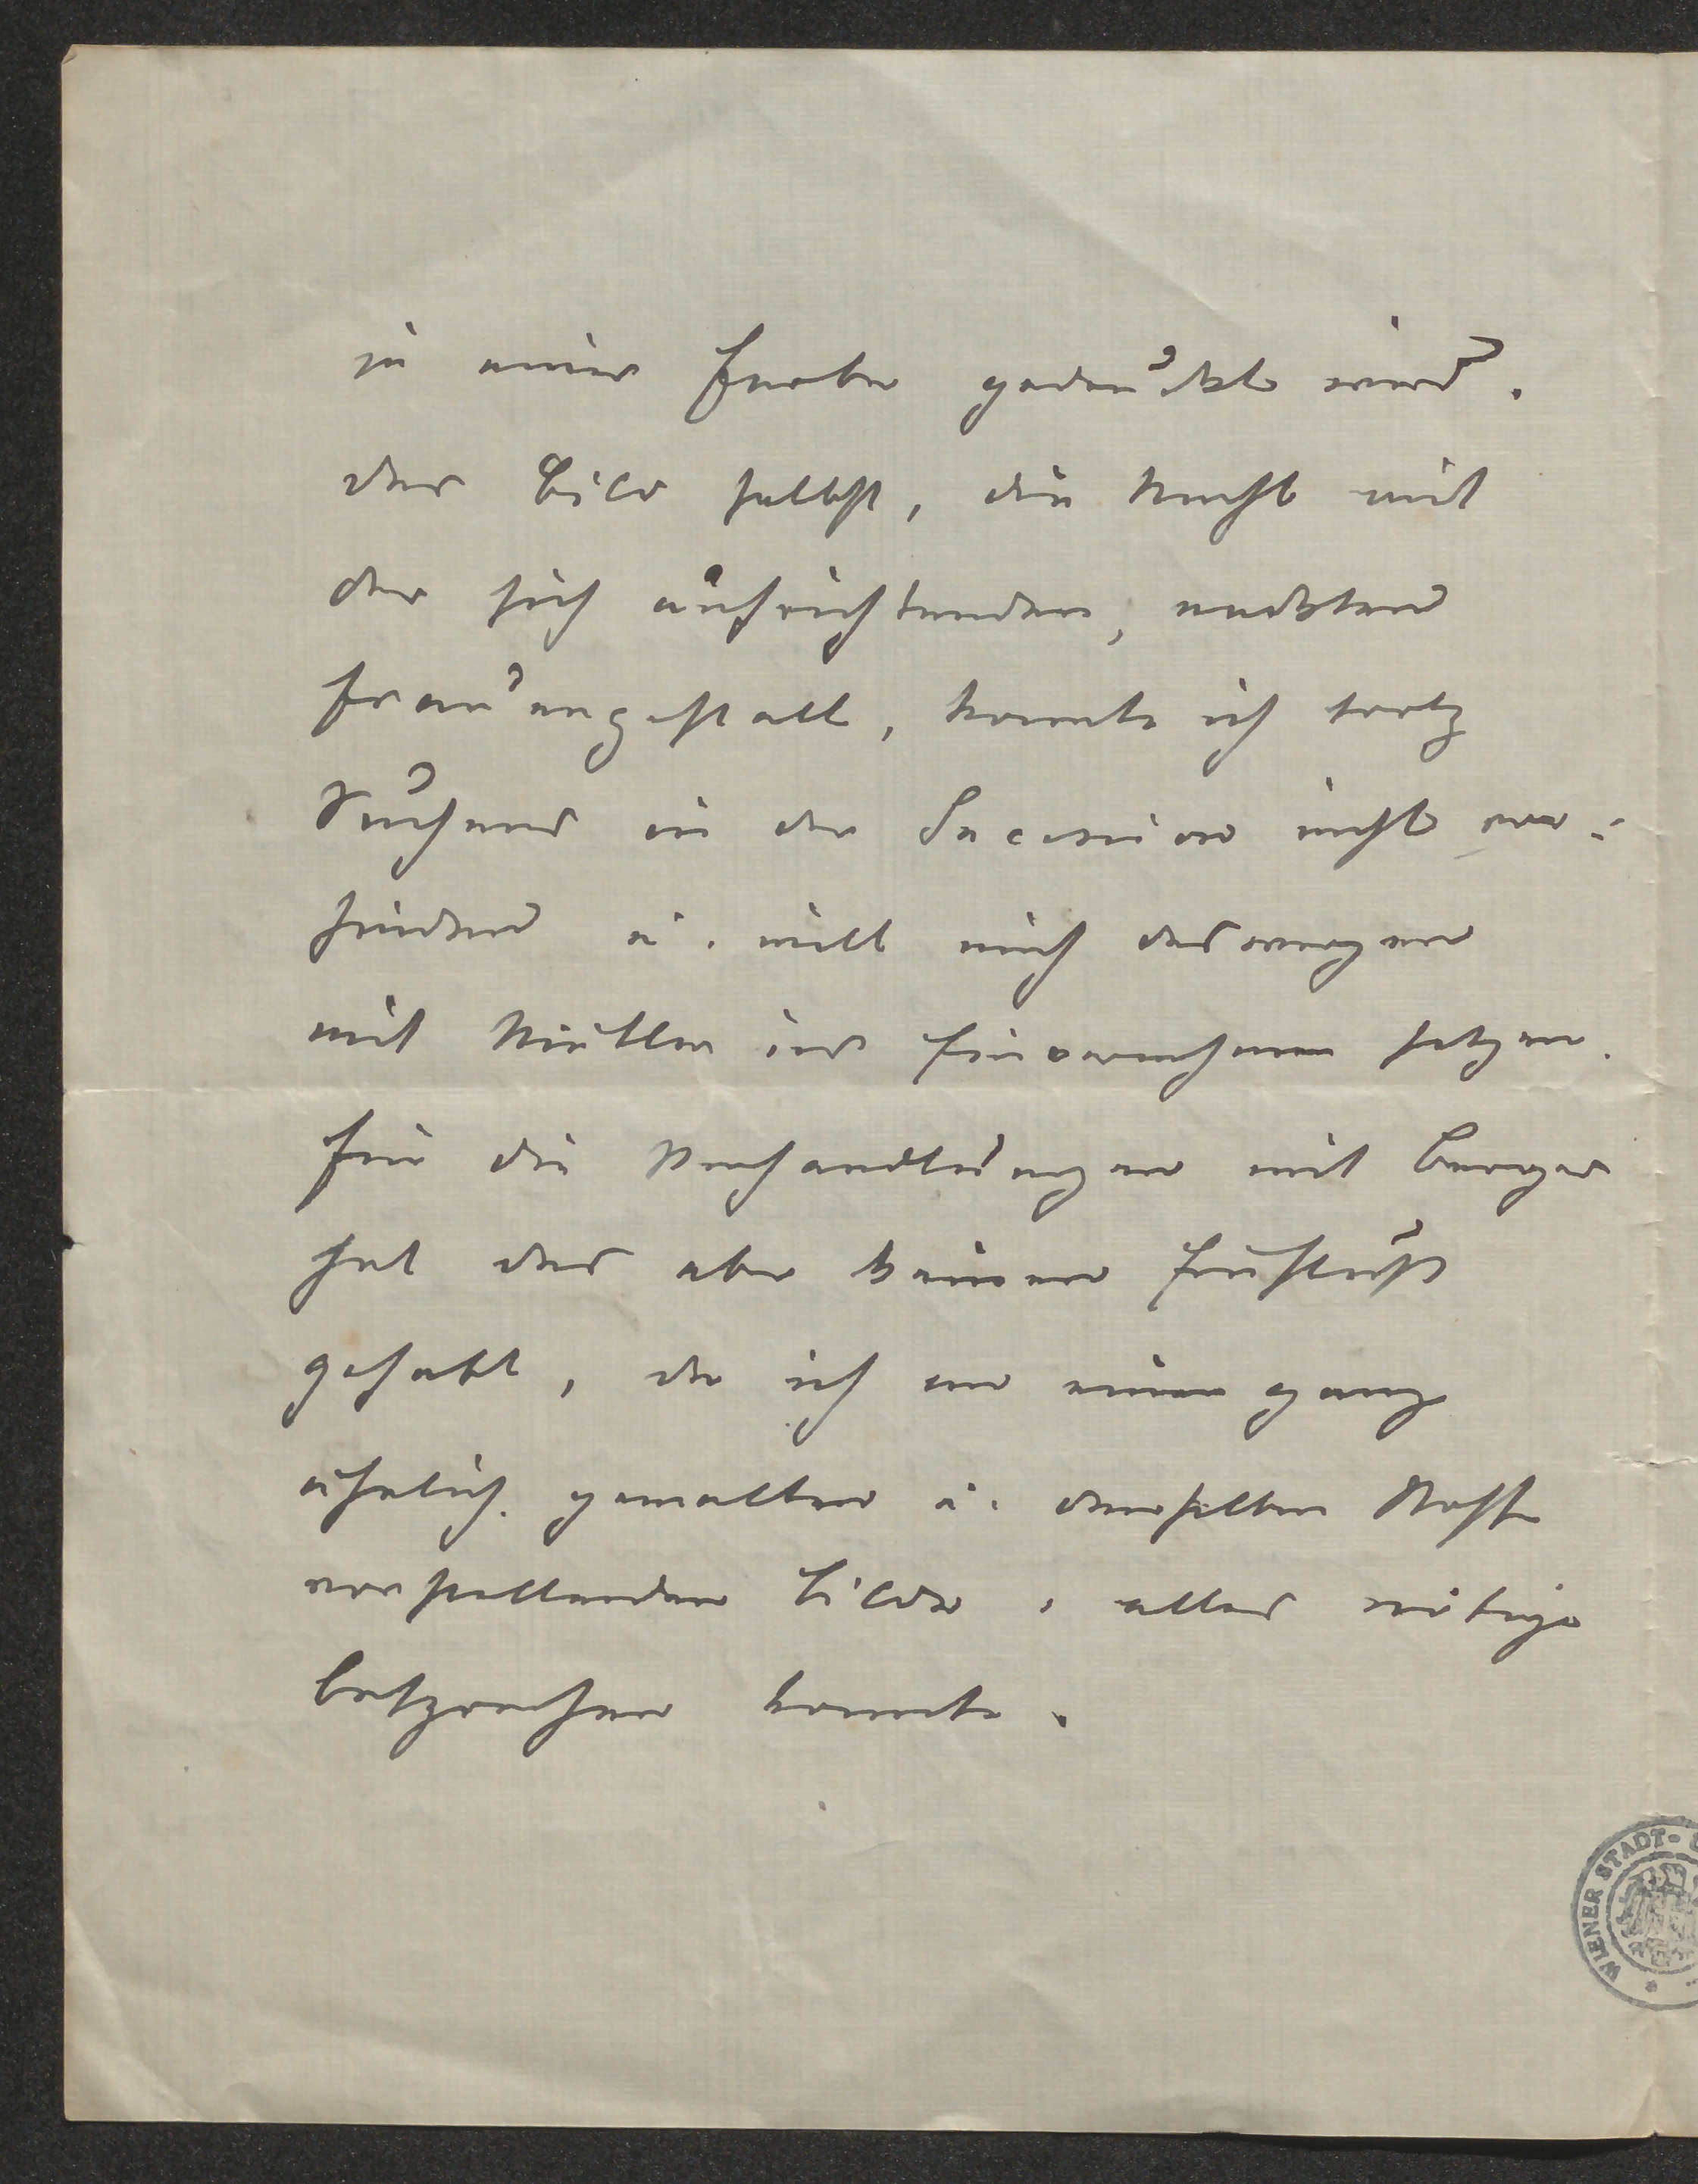 in einer Farbe gedruckt wird.
Das Bild selbst, die Nacht mit
der sich aufrichtenden, nackten
Frauengestalt, konnte ich trotz
Suchens in der Secession nicht vor-
finden u. will mich deswegen
mit Müller ins Einvernehmen setzen.
Für die Verhandlungen mit Berger
hat das aber keinen Einfluß
gehabt, da ich an einem ganz
ähnlich gemalten u. denselben Stoff
vorstellenden Bilde, alles nötige
besprechen konnte.
WIENER STADT-